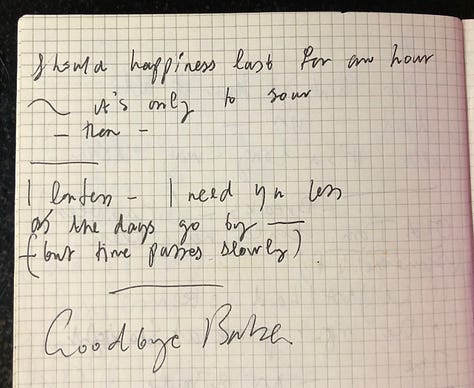 Should happiness last for an hour
~ it's only to sour
- then -
I - I need you less
as the days go by —
(but time passes slowly).
Goodbye